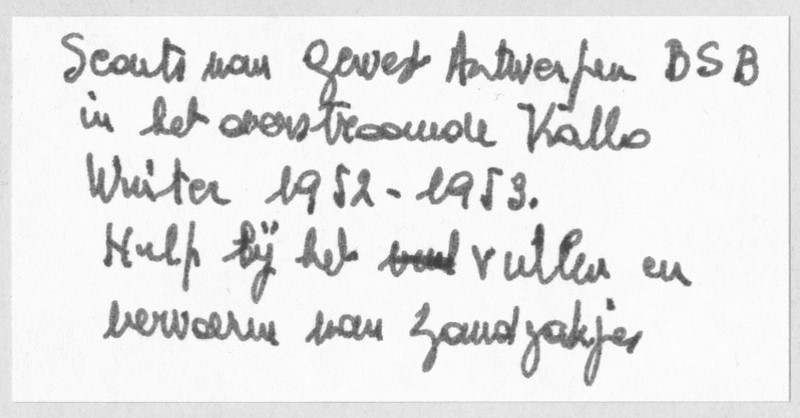 Scouts van Gewest Antwerpen BSB
in het overstroomde Kallo
Winter 1952-1953.
Hulp bij het vullen en
vervoeren van zandzakjes